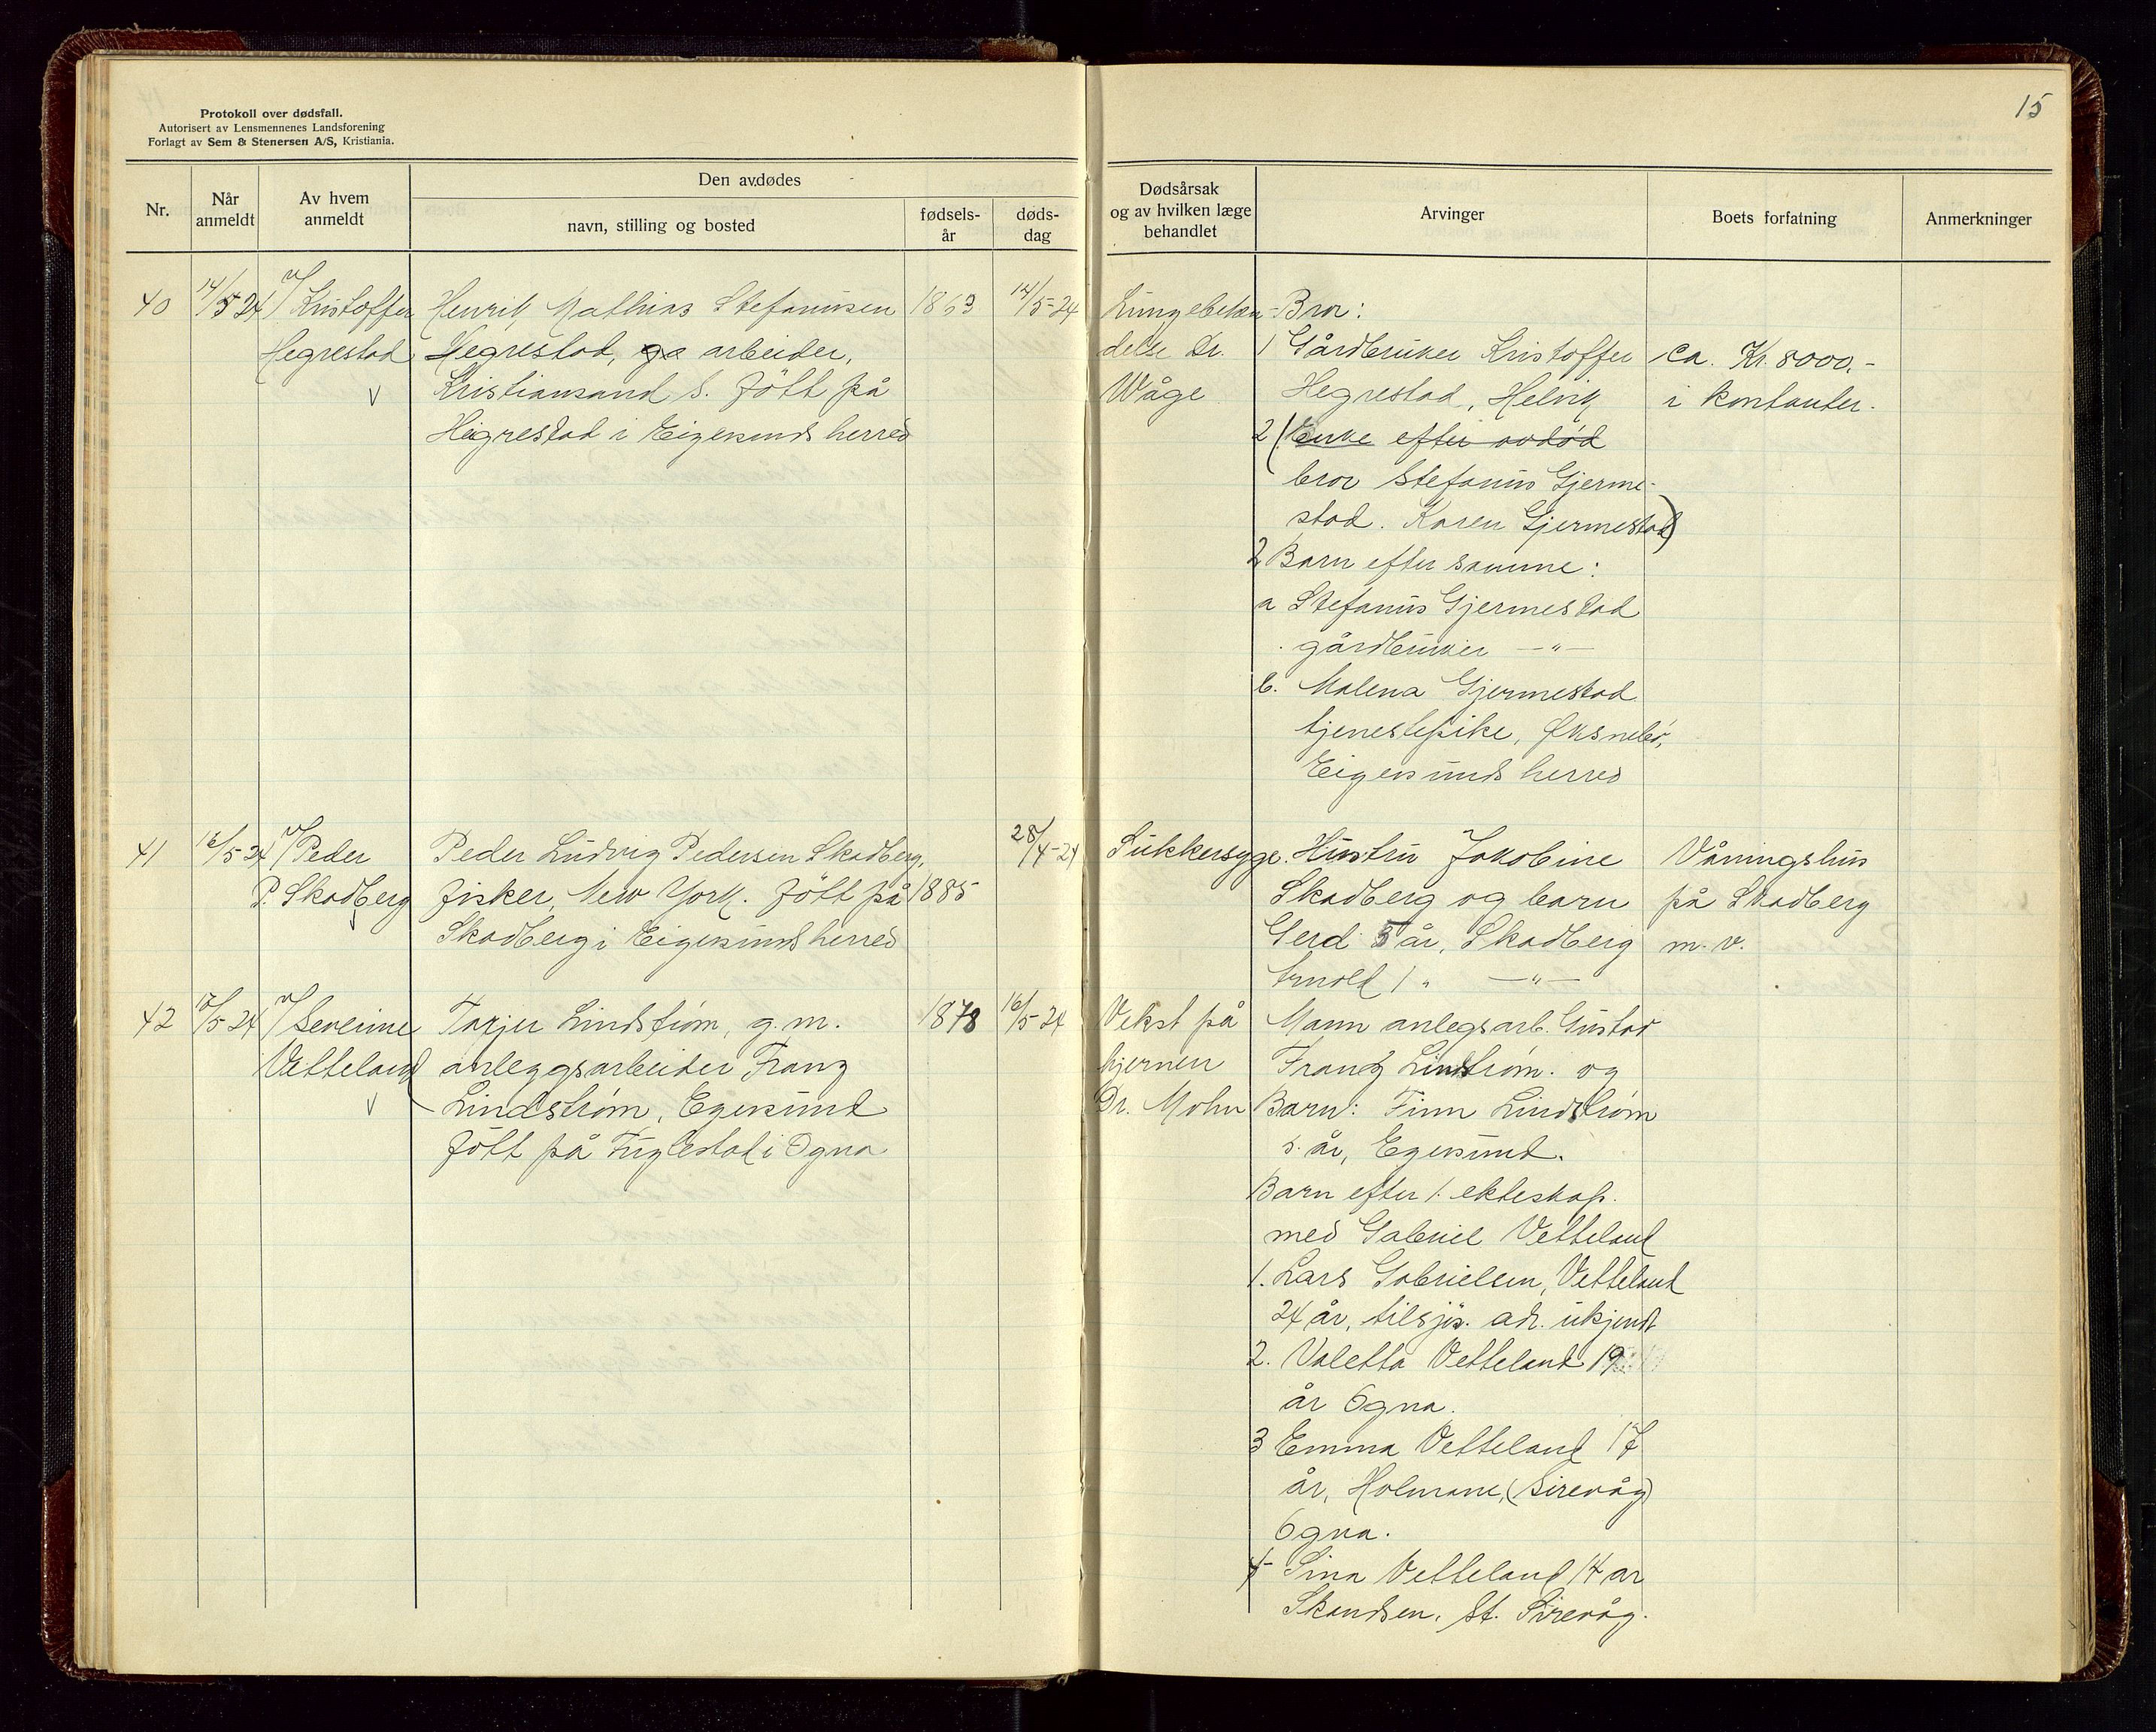 15
Protokoll over dødsfall.
Autorisert av Lensmennenes Landsforening
Forlagt av Sem & Stenersen A/S, Kristiania.
Nr.
Når anmeldt
Av hvem anmeldt
Den avdødes
navn, stilling og bosted
fødsels-år
døds-dag
Dødsårsak og av hvilken læge behandlet
Arvinger
Boets forfatning
Anmerkninger
40
14/5 24
v/ Kristoffer
Hegrestad
v
Henrik Mathias Stefanusen
Hegrestad, ga arbeider,
Kristiansand S. Fött på
Hegrestad i Eigersunds herred
1863
14/5-24
Lungebeten-
delse Dr.
Wåge
Bror:
1 Gårdbruker Kristoffer
Hegrestad, Helvik
2 (Enke efter avdød
bror Stefanus Gjerme-
stad. Karen Gjermestad)
2 Barn efter samme:
a Stefanus Gjermestad
gårdbruker —"—
b. Malena Gjermestad
tjenestepike, Øksnebö,
Eigersunds herred
ca. Kr. 8000,-
i kontanter.
41
16/5-24
v/ Peder
P. Skadberg
v
Peder Ludvig Pedersen Skadberg,
fisker, New York. Fött på
Skadberg i Eigersunds herred
1885
28/4-24
Sukkersyge.
Hustru Jakobine
Skadberg og barn
Gerd 3 år, Skadberg
Arnold 1 " —"—
Våningshus
på Skadberg
m. v.
42
17/5-24
v/ Severine
Vetteland
v
Tarjer Lindstrøm, g.m.
anleggsarbeider Franz
Lindstrøm, Egersund
Fött på Fuglestad i Ogna
1878
16/5-24
Vekst på
hjernen
Dr. Mohn
Mann anlegsarb. Gustav
Frantz Lindstrøm. og
Barn: Finn Lindstrøm
år, Egersund.
Barn efter 1. ekteskap.
med Gabriel Vetteland
1. Lars Gabrielsen, Vetteland
24 år, tilsjøs. adr. ukjendt
2. Valetta Vetteland 19
år Ogna.
3 Emma Vetteland 17
år, Holmane, (Sirevåg)
Ogna.
4 Sina Vetteland 14 år
Skandsen, St. Sirevåg.